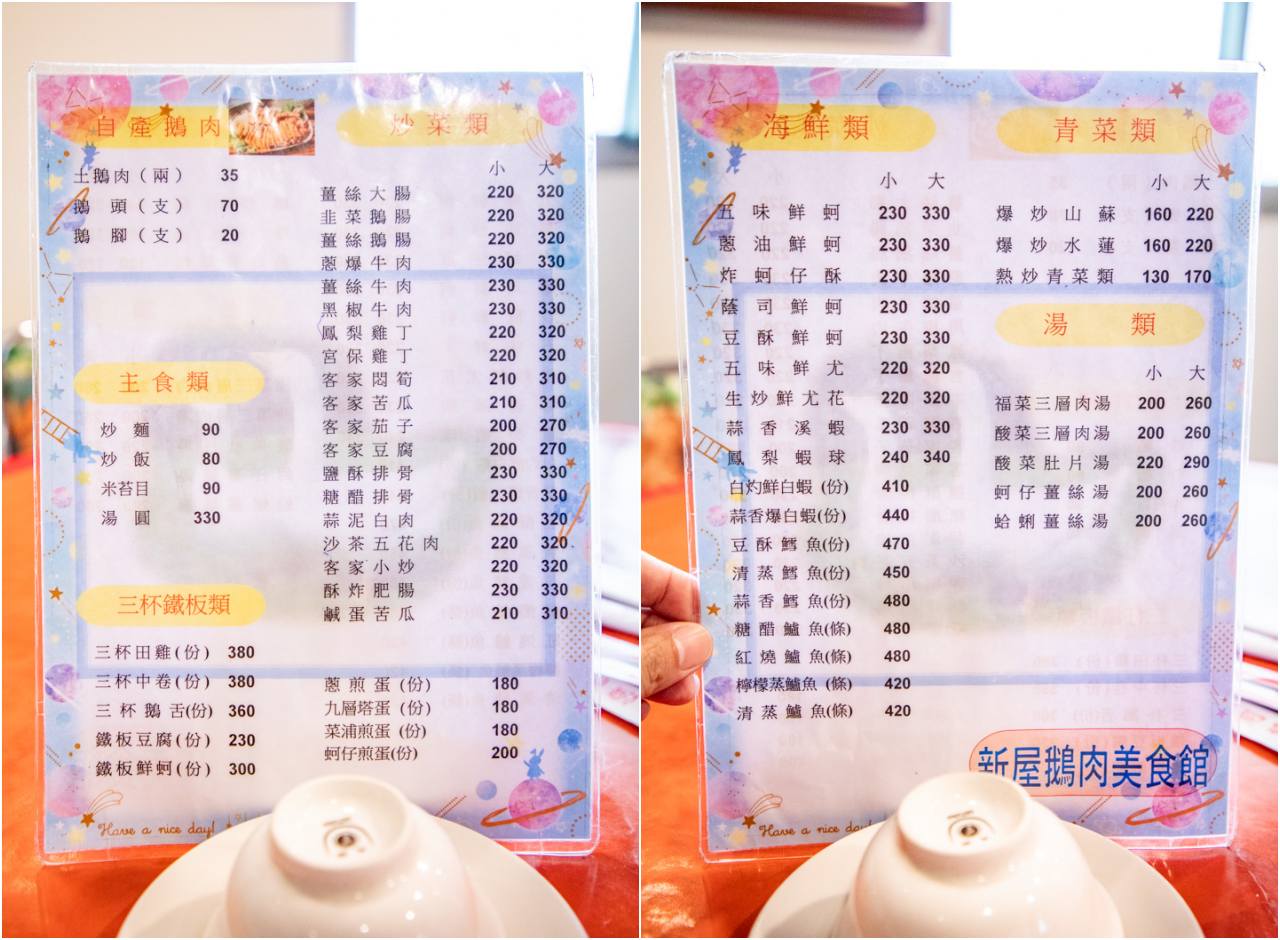 自產鵝肉
土鵝肉(兩) 35
鵝 頭(支) 70
鵝 腳(支) 20
主食類
炒 麵 90
炒 飯 80
米苔目 90
湯 圓 330
三杯鐵板類
三杯田雞(份) 380
三杯中卷(份) 380
三杯鵝舌(份) 360
鐵板豆腐(份) 230
鐵板鮮蚵(份) 300
炒菜類
小 大
薑絲大腸 220 320
韭菜鵝腸 220 320
薑絲鵝腸 220 320
蔥爆牛肉 230 330
薑絲牛肉 230 330
黑椒牛肉 230 330
鳳梨雞丁 220 320
宮保雞丁 220 320
客家悶筍 210 310
客家苦瓜 210 310
客家茄子 200 270
客家豆腐 200 270
鹽酥排骨 230 330
糖醋排骨 230 330
蒜泥白肉 220 320
沙茶五花肉 220 320
客家小炒 220 320
酥炸肥腸 230 330
鹹蛋苦瓜 210 310
蔥煎蛋(份) 180
九層塔蛋(份) 180
菜浦煎蛋(份) 180
蚵仔煎蛋(份) 200
Have a nice day!
海鮮類
小 大
五味鮮蚵 230 330
蔥油鮮蚵 230 330
炸蚵仔酥 230 330
蔭司鮮蚵 230 330
豆酥鮮蚵 230 330
五味鮮尤 220 320
生炒鮮尤花 220 320
蒜香溪蝦 230 330
鳳梨蝦球 240 340
白灼鮮白蝦(份) 410
蒜香爆白蝦(份) 440
豆酥鱈魚(份) 470
清蒸鱈魚(份) 450
蒜香鱈魚(份) 480
糖醋鱸魚(條) 480
紅燒鱸魚(條) 480
檸檬蒸鱸魚(條) 420
清蒸鱸魚(條) 420
青菜類
小 大
爆炒山蘇 160 220
爆炒水蓮 160 220
熱炒青菜類 130 170
湯 類
小 大
福菜三層肉湯 200 260
酸菜三層肉湯 200 260
酸菜肚片湯 220 290
蚵仔薑絲湯 200 260
蛤蜊薑絲湯 200 260
新屋鵝肉美食館
Have a nice day